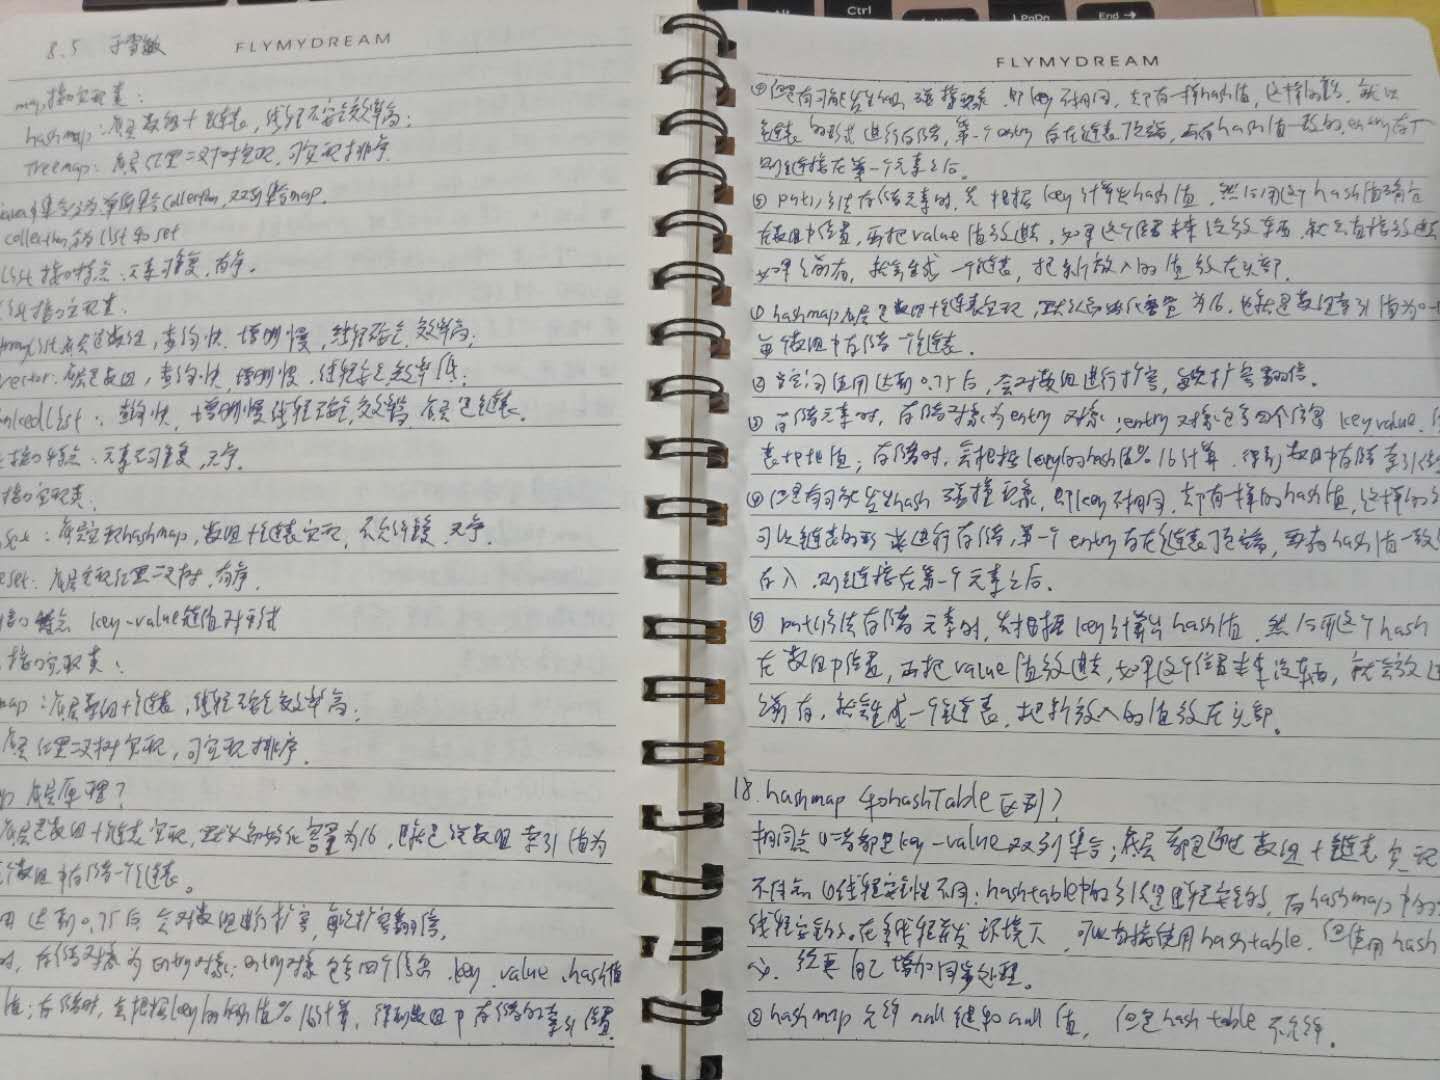 8.5
FLYMYDREAM
map接口实现类:
hashmap:底层数组+链表,线程不安全效率高;
Treemap:底层红黑二叉树实现,可实现排序.
java中集合分为单列集合Collection,双列集合map.
collection分为list和set
List接口特点:元素可重复,有序.
接口实现类:
ArrayList底层是数组,查询快,增删慢,线程不安全,效率高;
vector:底层是数组,查询快,增删慢,线程安全,效率低;
linkedList:查询快,增删慢线程不安全,效率高,底层是链表.
接口特点:元素不可重复,无序.
接口实现类.
set:底层实现hashmap,数组+链表实现,不允许重复,无序.
eset:底层实现红黑二叉树,有序.
接口特点 key-value键值对形式
接口实现类:
map:底层数组+链表,线程不安全效率高;
底层红黑二叉树实现,可实现排序.
底层原理?
底层是数组+链表实现,默认初始化容量为16,也就是说数组索引值为
个数组中存储一个链表。
用达到0.75后会对数组进行扩容,每次扩容翻倍,
时,存储对象为entry对象;entry对象包含四个信息.key.value.hash值
值;存储时,会根据key的hash值%16计算,得到数组中存储的索引位置.
Ctrl
PgDn
End →
FLYMYDREAM
④但是有可能发生hash碰撞现象,即key不相同,却有一样hash值,这样的话,就以
链表的形式进行存储,第一个entry存在链表顶端,再有hash值一致的entry存入
则连接在第一个元素之后。
⑤put()方法存储元素时,先根据key计算出hash值,然后用这个hash值确定
在数组中位置,再把value值放进去,如果这个位置本来没放东西,就会直接放进去
如果之前有,就会生成一个链表,把新放入的值放在头部.
①hashmap底层是数组+链表实现,默认初始化容量为16,也就是数组索引值为0-
每个数组中存储一个链表.
②当空间使用达到0.75后,会对数组进行扩容,每次扩容翻倍.
③存储元素时,存储对象为entry对象;entry对象包含四个信息key value.
表地址值;存储时,会根据key的hash值%16计算,得到数组中存储索引位
④但是有可能发生hash碰撞现象,即key不相同,却有一样的hash值,这样的
可以链表的形式进行存储,第一个entry存在链表顶端,再有hash值一致
存入,则连接在第一个元素之后.
⑤put()方法存储元素时,先根据key计算出hash值,然后用这个hash
在数组中位置,再把value值放进去,如果这个位置本来没东西,就会放进
之前有,就会生成一个链表,把新放入的值放在头部.
18.hashmap和hashTable区别?
相同点①二者都是key-value双列集合;底层都是通过数组+链表实现
不同点①线程安全性不同:hashtable中的方法是线程安全的,而hashmap中的
线程安全的.在多线程并发环境下,可以直接使用hashtable.但使用hash
必须要自己增加同步处理。
②hashmap允许null键和null值,但是hashtable不允许.